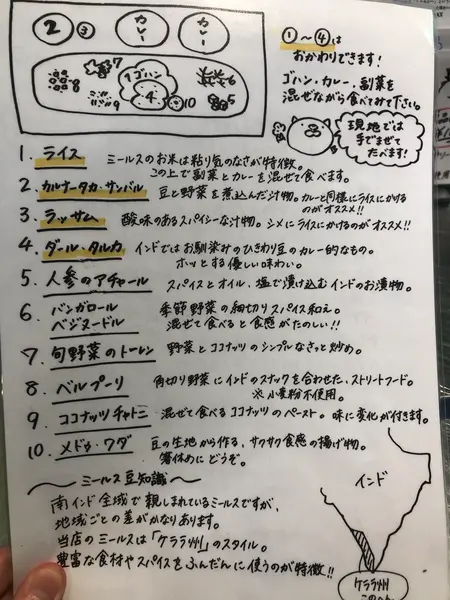 ②
③
カレー
カレー
7
8
9
1ゴハン
4
10
6
5
①〜④は
おかわりできます!
ゴハン、カレー、副菜を
混ぜながら食べてみて下さい。
現地では
手でまぜて
たべます!
1. ライス ミールスのお米は粘り気のなさが特徴。
この上で副菜とカレーを混ぜて食べます。
2. カルナータカ・サンバル 豆と野菜を煮込んだ汁物。カレーと同様にライスにかける
のがオススメ!!
3. ラッサム 酸味のあるスパイシーな汁物。シメにライスにかけるのがオススメ!!
4. ダール・タルカ インドではお馴染みのひきわり豆のカレー的なもの。
ホッとする優しい味わい。
5. 人参のアチャール スパイスとオイル、塩で漬け込むインドのお漬物。
6. バンガロール 季節野菜の細切りスパイス和え。
ベジヌードル 混ぜて食べると食感がたのしい!!
7. 旬野菜のトーレン 野菜とココナッツのシンプルなさっと炒め。
8. ベルプーリ 角切り野菜にインドのスナックを合わせた、ストリートフード。
※小麦粉不使用。
9. ココナッツチャトニ 混ぜて食べるココナッツのペースト。味に変化が付きます。
10. メドゥ・ワダ 豆の生地から作る、サクサク食感の揚げ物。
箸休めにどうぞ。
〜ミールス豆知識〜
南インド全域で親しまれているミールスですが、
地域ごとの差がかなりあります。
当店のミールスは「ケララ州」のスタイル。
豊富な食材やスパイスをふんだんに使うのが特徴!!
インド
ケララ州
このへん